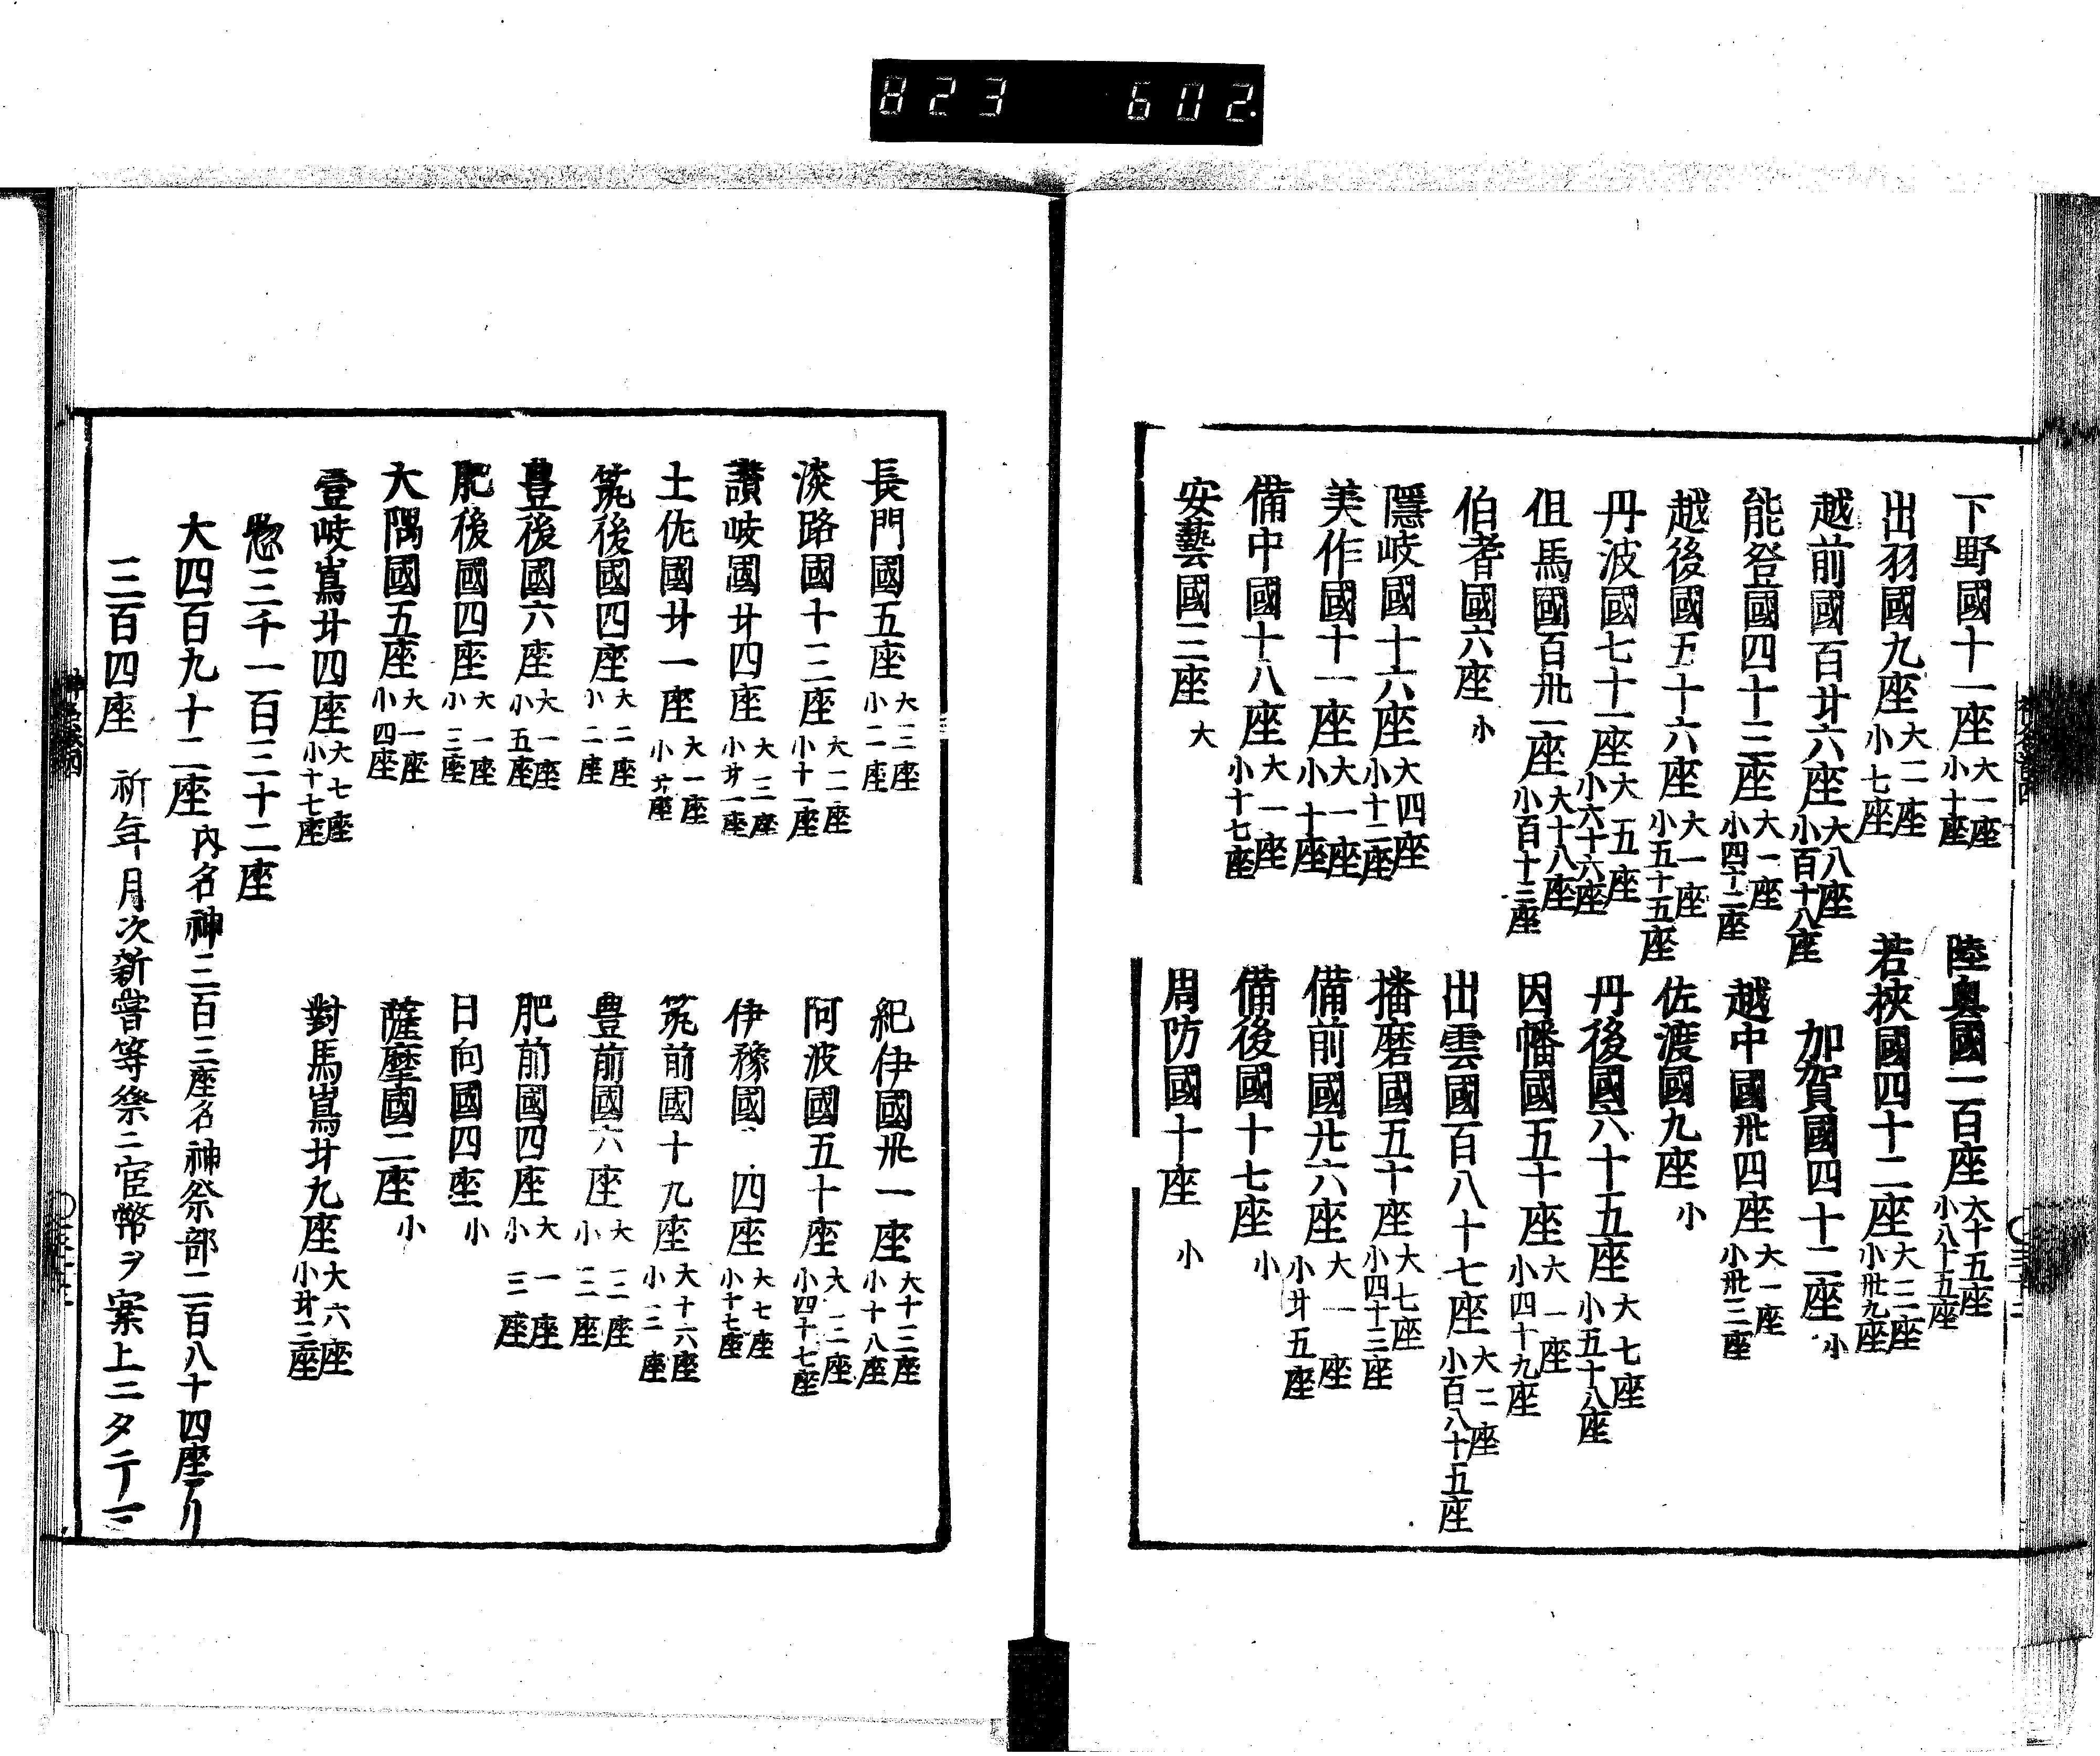 823 602.
下野國十一座 大一座 小十座
陸奥國一百座 大十五座 小八十五座
出羽國九座 大二座 小七座
若狹國四十二座 大三座 小卅九座
越前國百廿六座 大八座 小百十八座
加賀國四十二座 小
能登國四十三座 大一座 小四十二座
越中國卅四座 大一座 小卅三座
越後國五十六座 大一座 小五十五座
佐渡國九座 小
丹波國七十一座 大五座 小六十六座
丹後國六十五座 大七座 小五十八座
但馬國百卅一座 大十八座 小百十三座
因幡國五十座 大一座 小四十九座
伯耆國六座 小
出雲國百八十七座 大二座 小百八十五座
隱岐國十六座 大四座 小十二座
播磨國五十座 大七座 小四十三座
美作國十一座 大一座 小十座
備前國廿六座 大一座 小廿五座
備中國十八座 大一座 小十七座
備後國十七座 小
安藝國三座 大
周防國十座 小
長門國五座 大三座 小二座
紀伊國卅一座 大十三座 小十八座
淡路國十三座 大二座 小十一座
阿波國五十座 大三座 小四十七座
讃岐國廿四座 大三座 小廿一座
伊豫國 四座 大七座 小十七座
土佐國廿一座 大一座 小廿座
筑前國十九座 大十六座 小三座
筑後國四座 大二座 小二座
豊前國六座 大三座 小三座
豊後國六座 大一座 小五座
肥前國四座 大一座 小三座
肥後國四座 大一座 小三座
日向國四座 小
大隅國五座 大一座 小四座
薩摩國二座 小
壹岐嶌廿四座 大七座 小十七座
對馬嶌廿九座 大六座 小廿三座
惣三千一百三十二座
大四百九十二座 内名神三百三座名神祭部二百八十四座アリ
三百四座 祈年月次新嘗等祭ニ官幣ヲ案上ニタテ